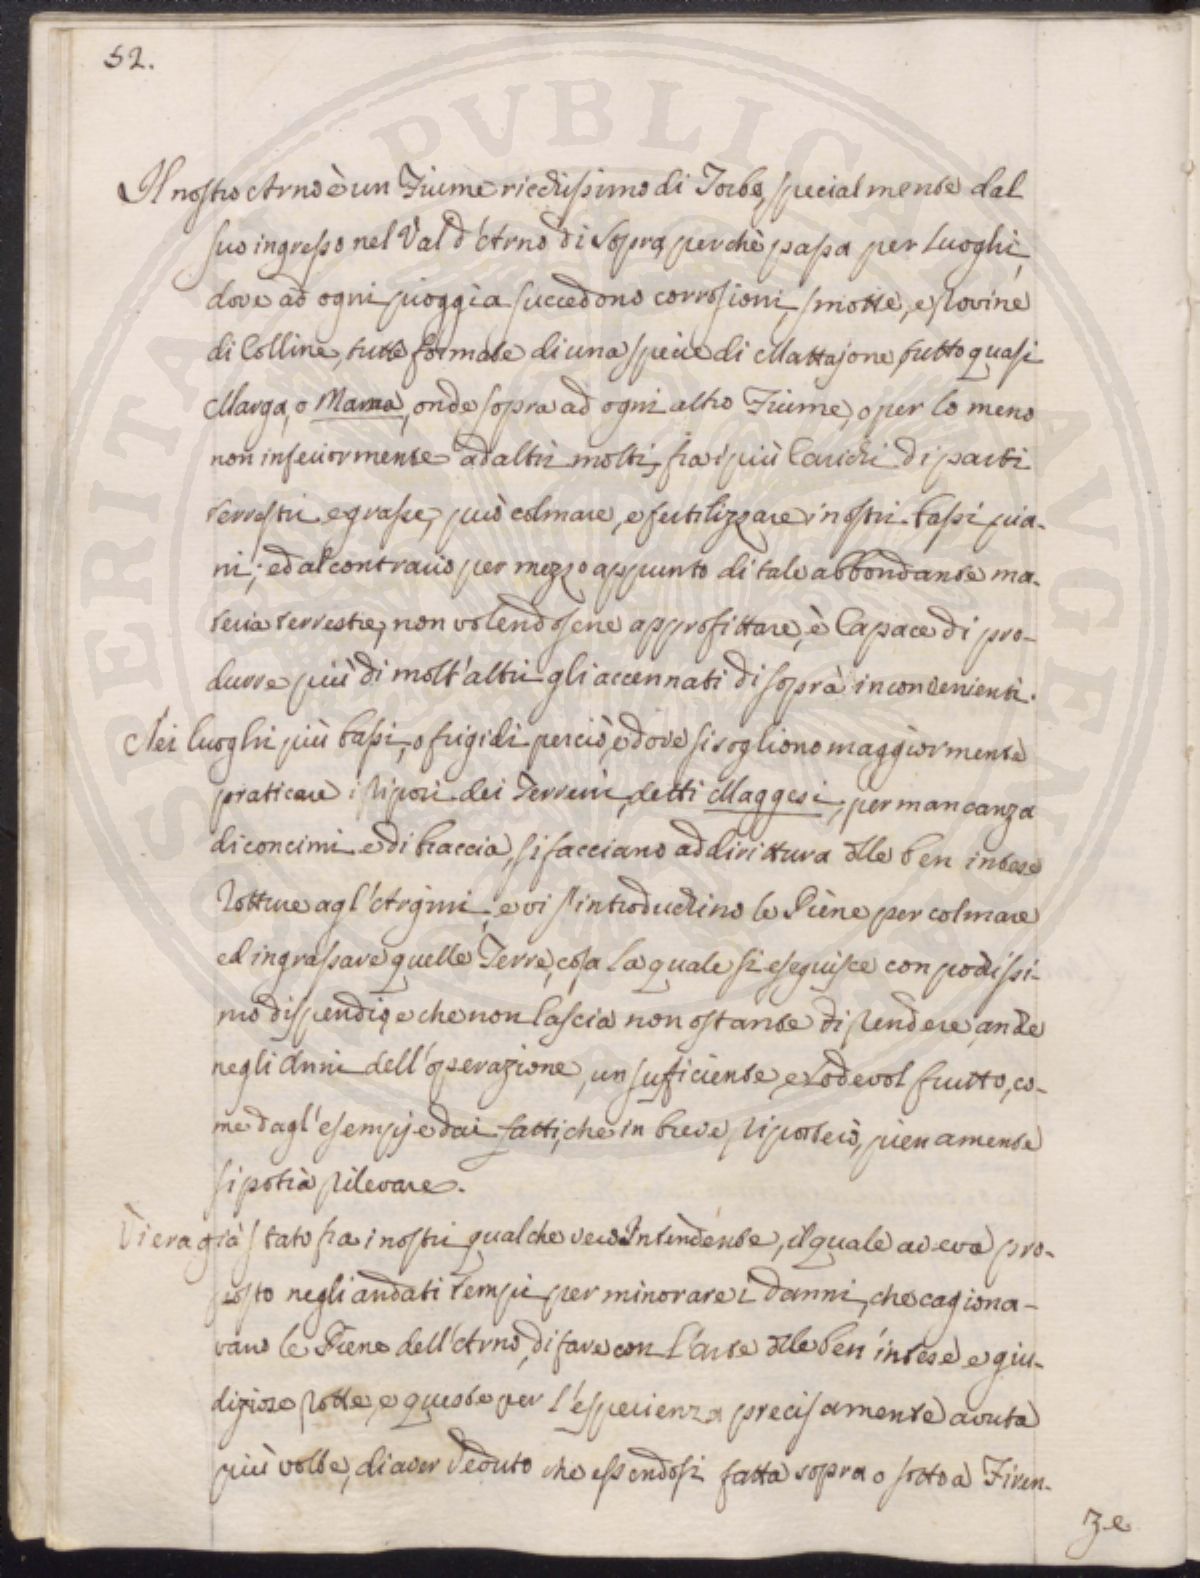 52.
Il nostro Arno è un Fiume ricchissimo di Torbe, specialmente dal
suo ingresso nel Val d'Arno di Sopra, perchè passa per Luoghi,
dove ad ogni pioggia succedono corrosioni, smotte, e rovine
di Colline, tutte formate di una specie di Mattajone, tutto quasi
Marga, o Marna, onde sopra ad ogni altro Fiume, o per lo meno
non inferiormente ad altri molti, fra i più Carichi di parti
terrestri e grasse, può colmare, e fertilizzare i nostri bassi pia-
ni; ed al contrario per mezzo appunto di tale abbondante ma-
teria terrestre, non volendosene approfittare, è Capace di pro-
durre più di molt'altri gli accennati di soprà inconvenienti.
Nei luoghi più bassi, o frigidi perciò, e dove si sogliono maggiormente
praticare i riposi dei Terreni, detti Maggesi, per mancanza
di concimi e di braccia, si facciano addirittura delle ben intese
Rotture agl'Argini, e vi s'introduchino le Piene per colmare
ed ingrassare quelle Terre, cosa la quale si eseguisce con pochissi-
mo dispendio, e che non lascia non ostante di rendere, anche
negli Anni dell'operazione, un sufficiente, e Lodevol frutto, co-
me dagl'esempj e dai fatti, che in breve riporterò, pienamente
si potrà rilevare.
Vi era già stato fra i nostri qualche vero Intendente, il quale aveva pro-
posto negli andati tempi per minorare i danni, che cagiona-
vano le Piene dell'Arno, di fare con l'arte delle ben intese e giu-
diziose rotte, e queste per l'esperienza precisamente avuta
più volte, di aver Veduto che essendosi fatta sopra o sotto a Firen-
ze
SPERITAS PVBLICA AVGENDA